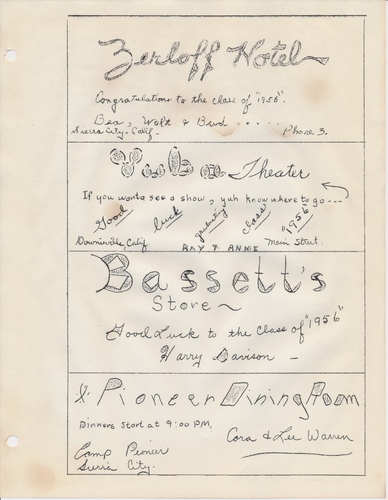 Zerloff Hotel
Congratulations to the class of "1956".
Bea, Walt & Bud.....
Sierra City, Calif. Phone 3.
Theater
If you wanta see a show, yuh know where to go...
Good luck graduating class "1956"
Downieville, Calif. RAY & ANNE Main Street.
Bassett's
Store~
Good Luck to the class of "1956"
Harry Davison -
Pioneer Dining Room
Dinners start at 9:00 P.M.
Cora & Lee Warren
Camp Pioneer
Sierra City.